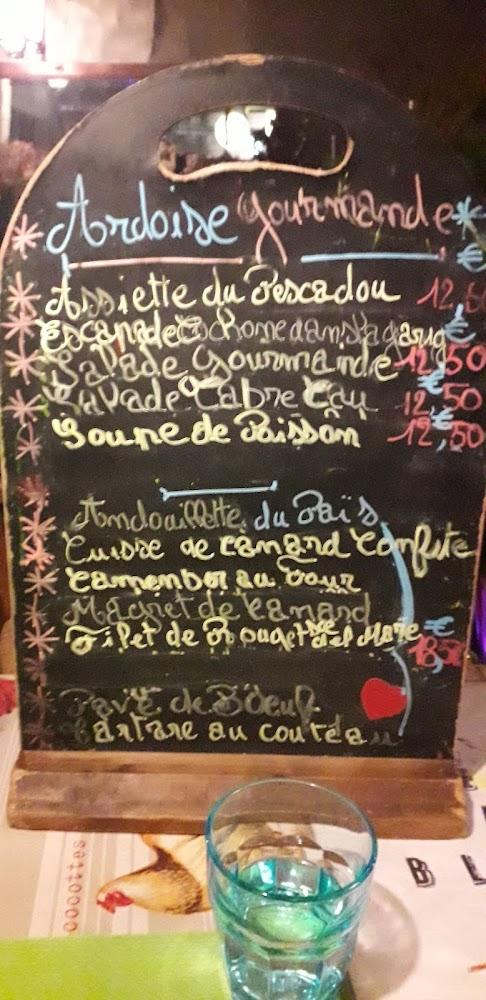 Ardoise Gourmande
€
Assiette du Pescadou 12,50
Escapade Cochonne dans la garig €
Salade Gourmande 12,50
€
Salade Cabre 12,50
€
Soupe de Poisson 12,50
Andouillette du Païs
Cuisse de Canard Confite
Camembert au Four
Magret de Canard
€
Filet de Rouget
18,50
Pavé de Boeuf
Tartare au couteau
cocottes
BL